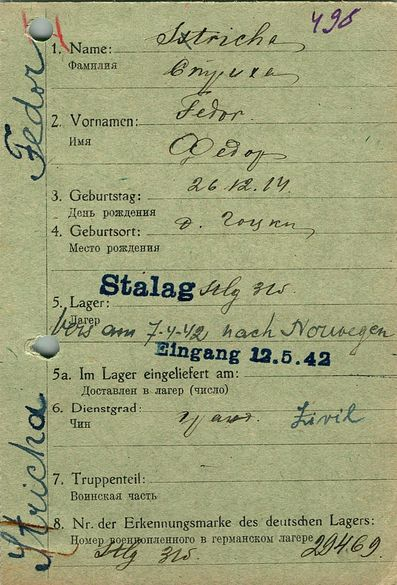 495
1. Name: Istricha
Фамилия
2. Vornamen: Fedor
Имя Федор
3. Geburtstag: 26.12.14
День рождения
4. Geburtsort: д. Гоцки
Место рождения
Stalag Stlg 315
5. Lager:
Лагерь
vers am 7-4-42 nach Norwegen
Eingang 12.5.42
5a. Im Lager eingeliefert am:
Доставлен в лагер (число)
6. Dienstgrad: гражд. Zivil
Чин
7. Truppenteil:
Воинская часть
8. Nr. der Erkennungsmarke des deutschen Lagers:
Номер военнопленного в германском лагере
Stlg 315. 29469.
Fedor
Stricha